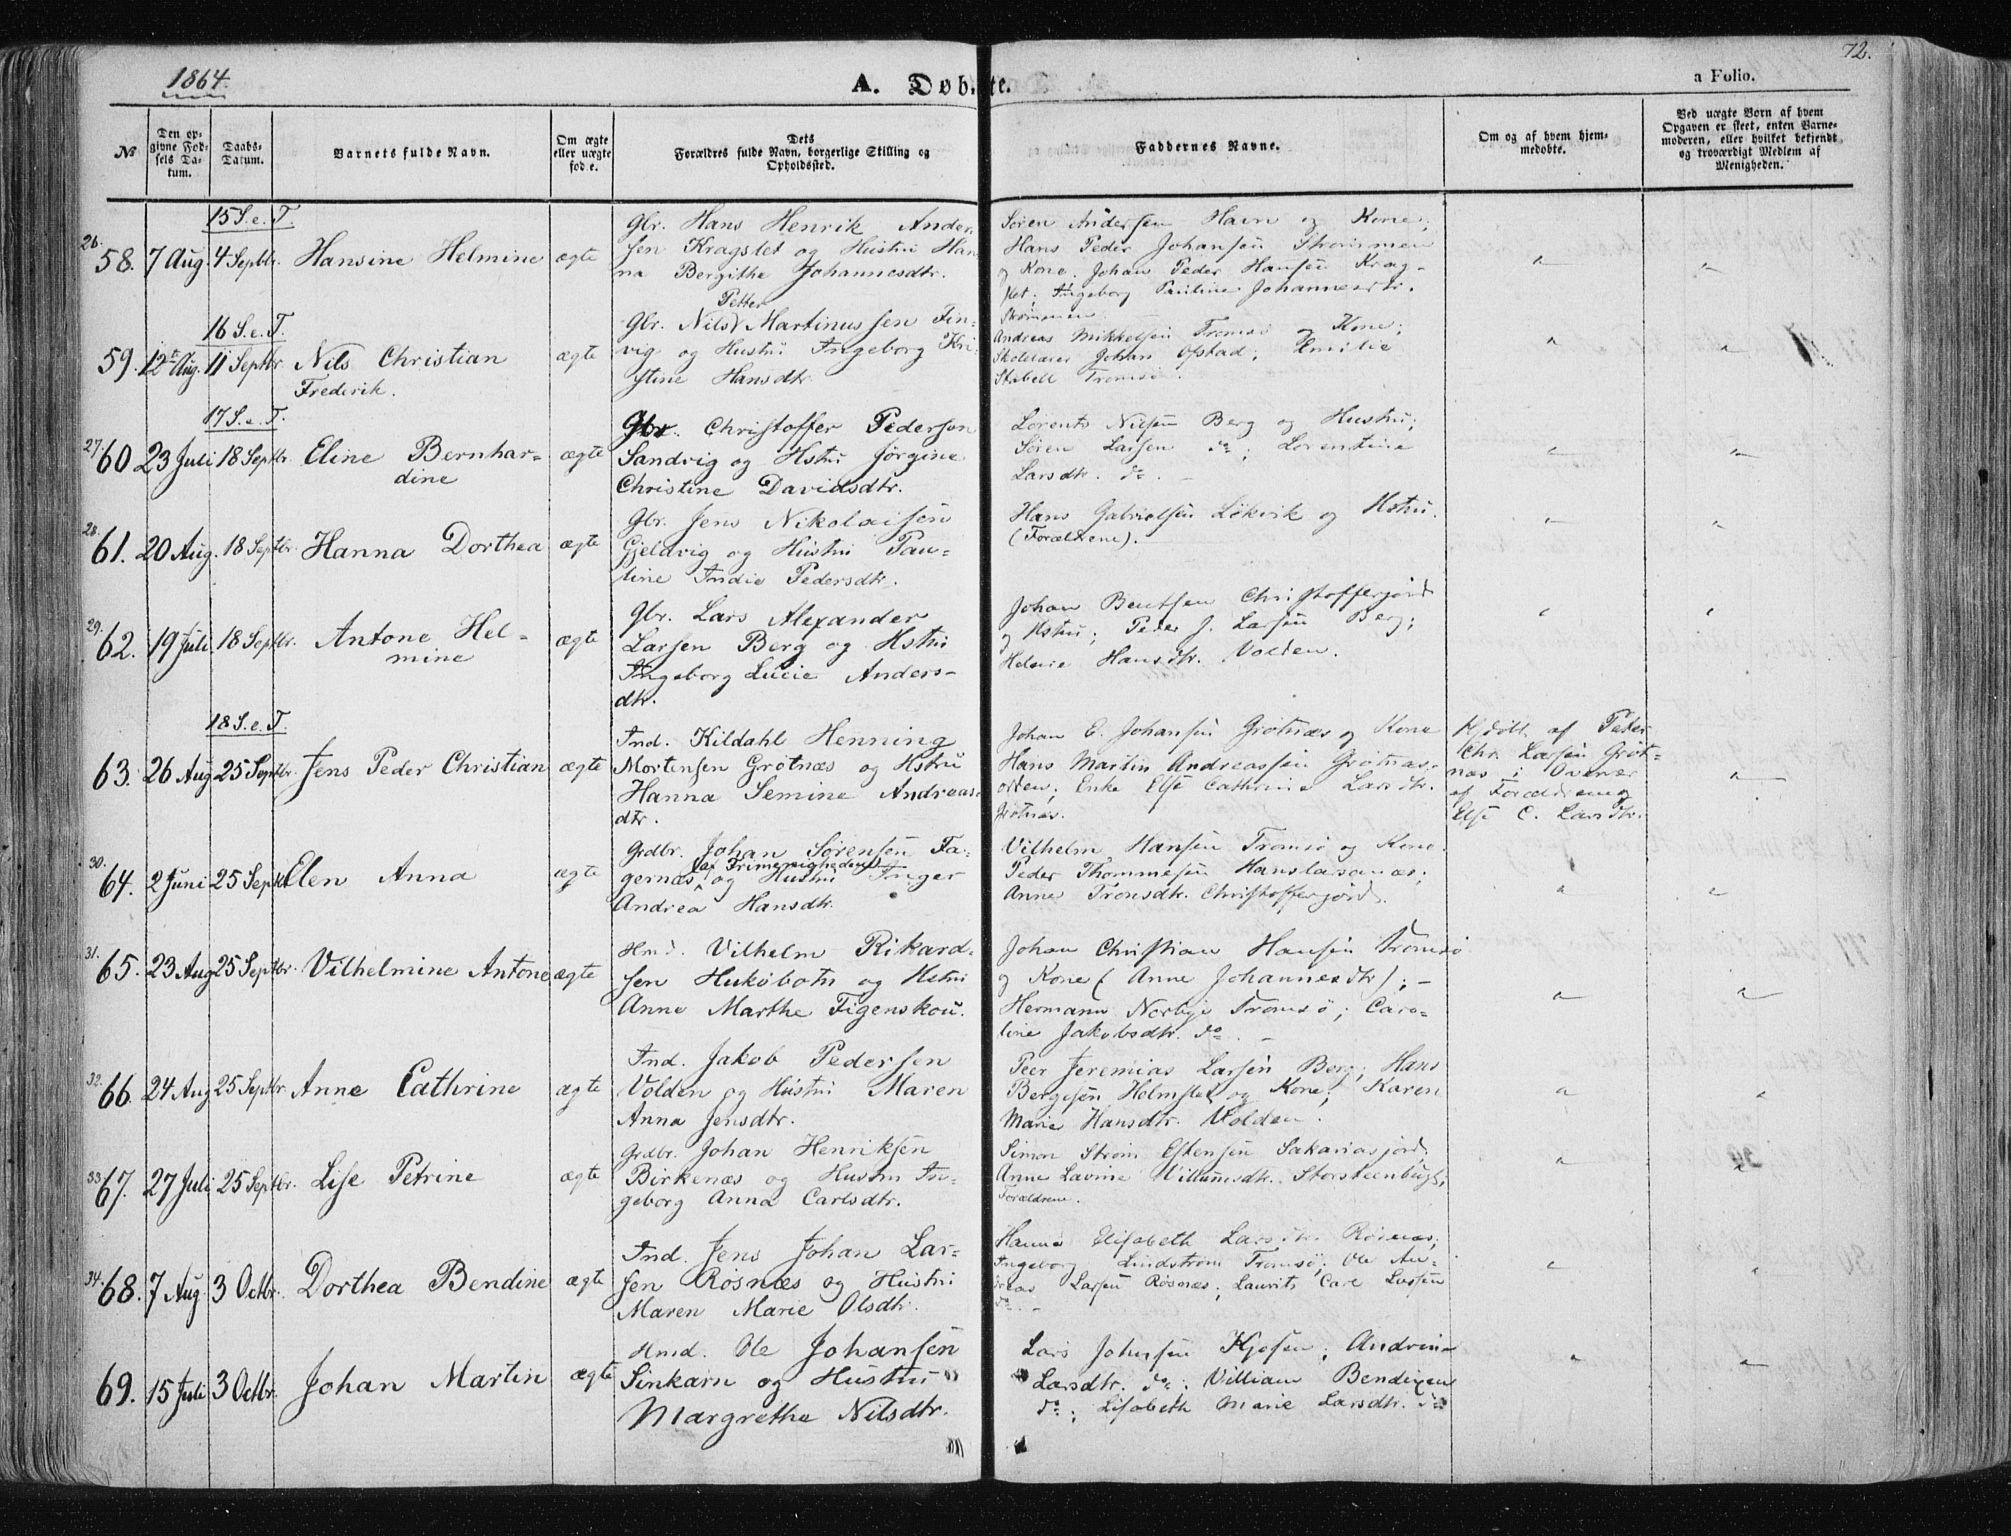 1864.
A. Døbte.
72.
a Folio.
№
Den opgivne Fødsels Datum.
Daabs-Datum.
Barnets fulde Navn.
Om ægte eller uægte fød e.
Dets Forældres fulde Navn, borgerlige Stilling og Opholdssted.
Faddernes Navne.
Om og af hvem hjemmedøbte.
Ved uægte Børn af hvem Opgaven er skeet, enten Barnemoderen, eller hvilket bekjendt og troværdigt Medlem af Menigheden.
15 S. e. T.
26.
58. 7 Aug. 4 Septbr. Hansine Helmine ægte
Gbr. Hans Henrik Ander
sen Kragslet og Hustru Han
na Bergithe Johannesdtr.
Søren Andersen Havn og Kone;
Hans Peder Johansen Strømmen
og Kone. Johan Peder Hansen Krag-
slet; Ingeborg Pauline Johannesdtr.
16 S. e. T.
59. 12te Aug. 11 Septbr. Nils Christian
Frederik. ægte
Petter
Gbr. Nils Martinussen Fin-
vig og Hustru Ingeborg Kri-
stine Hansdtr.
Andreas Mikkelsen Tromsø og Kone;
Skolelærer Johan Ofstad; Emilie
Stabell Tromsø.
17 S. e. T.
27.
60 23 Juli 18 Septbr. Eline Bernhar-
dine ægte
Gbr. Christoffer Pedersen
Sandvig og Hstru Jørgine
Christine Davidsdtr.
Lorents Nilsen Berg og Hustru;
Søren Larsen do; Lorentine
Larsdtr. do. -
28.
61. 20 Aug. 18 Septbr. Hanna Dorthea ægte
Gbr. Jens Nikolaisen
Gjeldvig og Hustru Pau-
line Indie Pedersdtr.
Hans Gabrielsen Løkvik og Hstru.
(Forældrene).
29.
62. 19 Juli 18 Septbr. Antone Hel-
mine ægte
Gbr. Lars Alexander
Larsen Berg og Hstru
Ingeborg Lucie Anders-
dtr.
Johan Bentsen Christofferjord
og Hstru; Peder J. Larsen Berg;
Helene Hansdtr. Volden.
18 S. e. T.
63. 26 Aug 25 Septbr. Jens Peder Christian ægte
Ind. Kildahl Henning
Mortensen Grøtnæs og Hstru
Hanna Semine Andreas-
dtr.
Johan E. Johansen Grøtnæs og Kone
Hans Martin Andreassen Grøtnæs-
; Enke Else Cathrine Larsdtr.
Grøtnæs.
Hjdøbt af Peder
Chr. Larsen Grøt-
næs i Overvær
af Forældrene og
Else C. Larsdtr.
30.
64. 2 Juni 25 Septbr. Elen Anna ægte
Grdbr. Johan Sørensen Fa-
(af Frimenigheden)
gernæs, og Hustru Inger
Andrea Hansdtr.
Vilhelm Hansen Tromsø og Kone
Peder Thommesen Hanslarsanæs;
Anne Tronsdtr. Christofferjord.
31.
65. 23 Aug 25 Septbr. Vilhelmine Antone ægte
Hmd. Vilhelm Rikard-
sen Hukøbotn og Hstru
Anne Marthe Figenskou.
Johan Christian Hansen Tromsø
og Kone (Anne Johannesdtr); -
Hermann Norbye Tromsø; Caro-
line Jakobsdtr. do. -
32.
66. 24 Aug 25 Septbr. Anne Cathrine ægte
Ind. Jakob Pedersen
Volden og Hustru Maren
Anna Jensdtr.
Peer Jeremias Larsen Berg; Hans
Bergesen Helmslet og Kone; Karen
Marie Hansdtr. Volden.
33.
67. 27 Juli 25 Septbr. Lise Petrine ægte
Grdbr. Johan Henriksen
Birkenæs og Hustru In-
geborg Anna Carlsdtr.
Simon Strøm Estensen Sakariasjord;
Anne Lavine Villumsdtr. Storsteenbugt;
Forældrene.
34.
68. 7 Aug 3 Octbr. Dorthea Bendine ægte
Ind. Jens Johan Lar-
sen Røsnæs og Hustru
Maren Marie Olsdtr.
Hanna Elisabeth Larsdtr. Røsnæs;
Ingeborg Lindstrøm Tromsø; Ole An-
dreas Larsen Røsnæs; Laurits Carl Larsen
do. -
69. 15 Juli 3 Octbr. Johan Martin ægte
Hmd. Ole Johansen
Sinkarn og Hustru
Margrethe Nilsdtr.
Lars Johnsen Kjosen; Andrine
Larsdtr. do; Villiam Bendixen
do; Lisabeth Marie Larsdtr. do